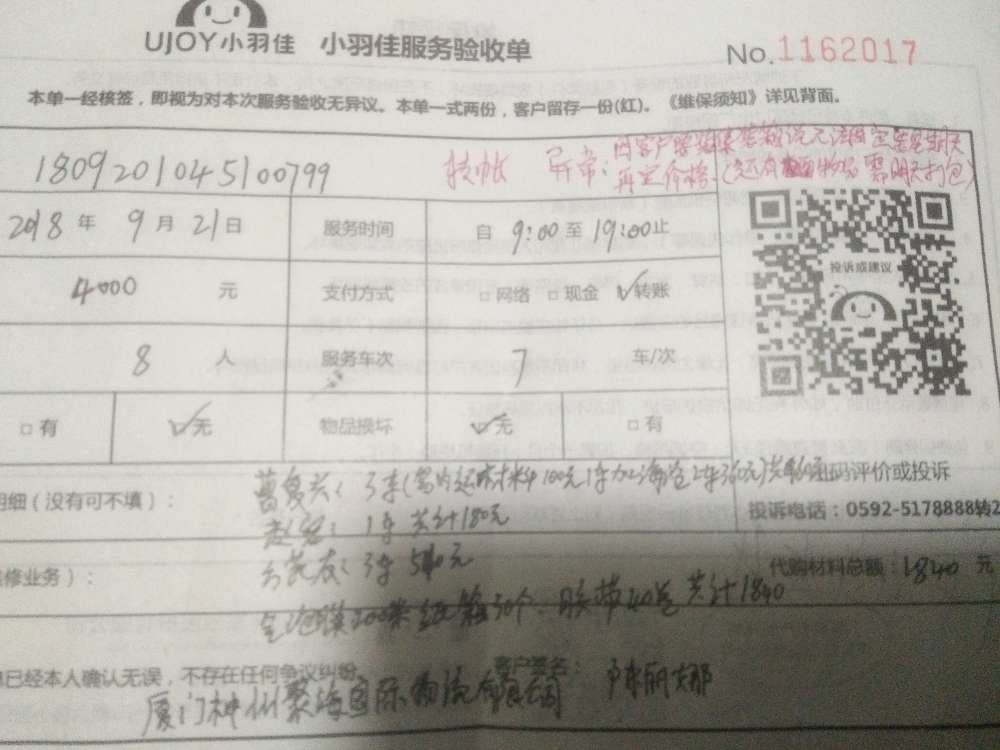 UJOY小羽佳 小羽佳服务验收单
No.1162017
本单一经核签，即视为对本次服务验收无异议。本单一式两份，客户留存一份(红)。《维保须知》详见背面。
1809201045100799 转帐 异常：因客户
再定价格 (还有 物品 需明天打包)
2018年9月21日 服务时间 自9:00至19:00止
4000 元 支付方式 □网络 □现金 ☑转账
投诉或建议
8 人 服务车次 7 车/次
□有 ☑无 物品损坏 ☑无 □有
明细（没有可不填）： 3车 100元 1车 2车360元 码评价或投诉
1车 共计180元
投诉电话：0592-5178888转2
修业务）： 3车 540元
代购材料总额：1840 元
气泡膜200米 纸箱50个 胶带40卷 共计1840
已经本人确认无误，不存在任何争议纠纷 客户签名： 陈丽娜
厦门神州聚海国际物流有限公司